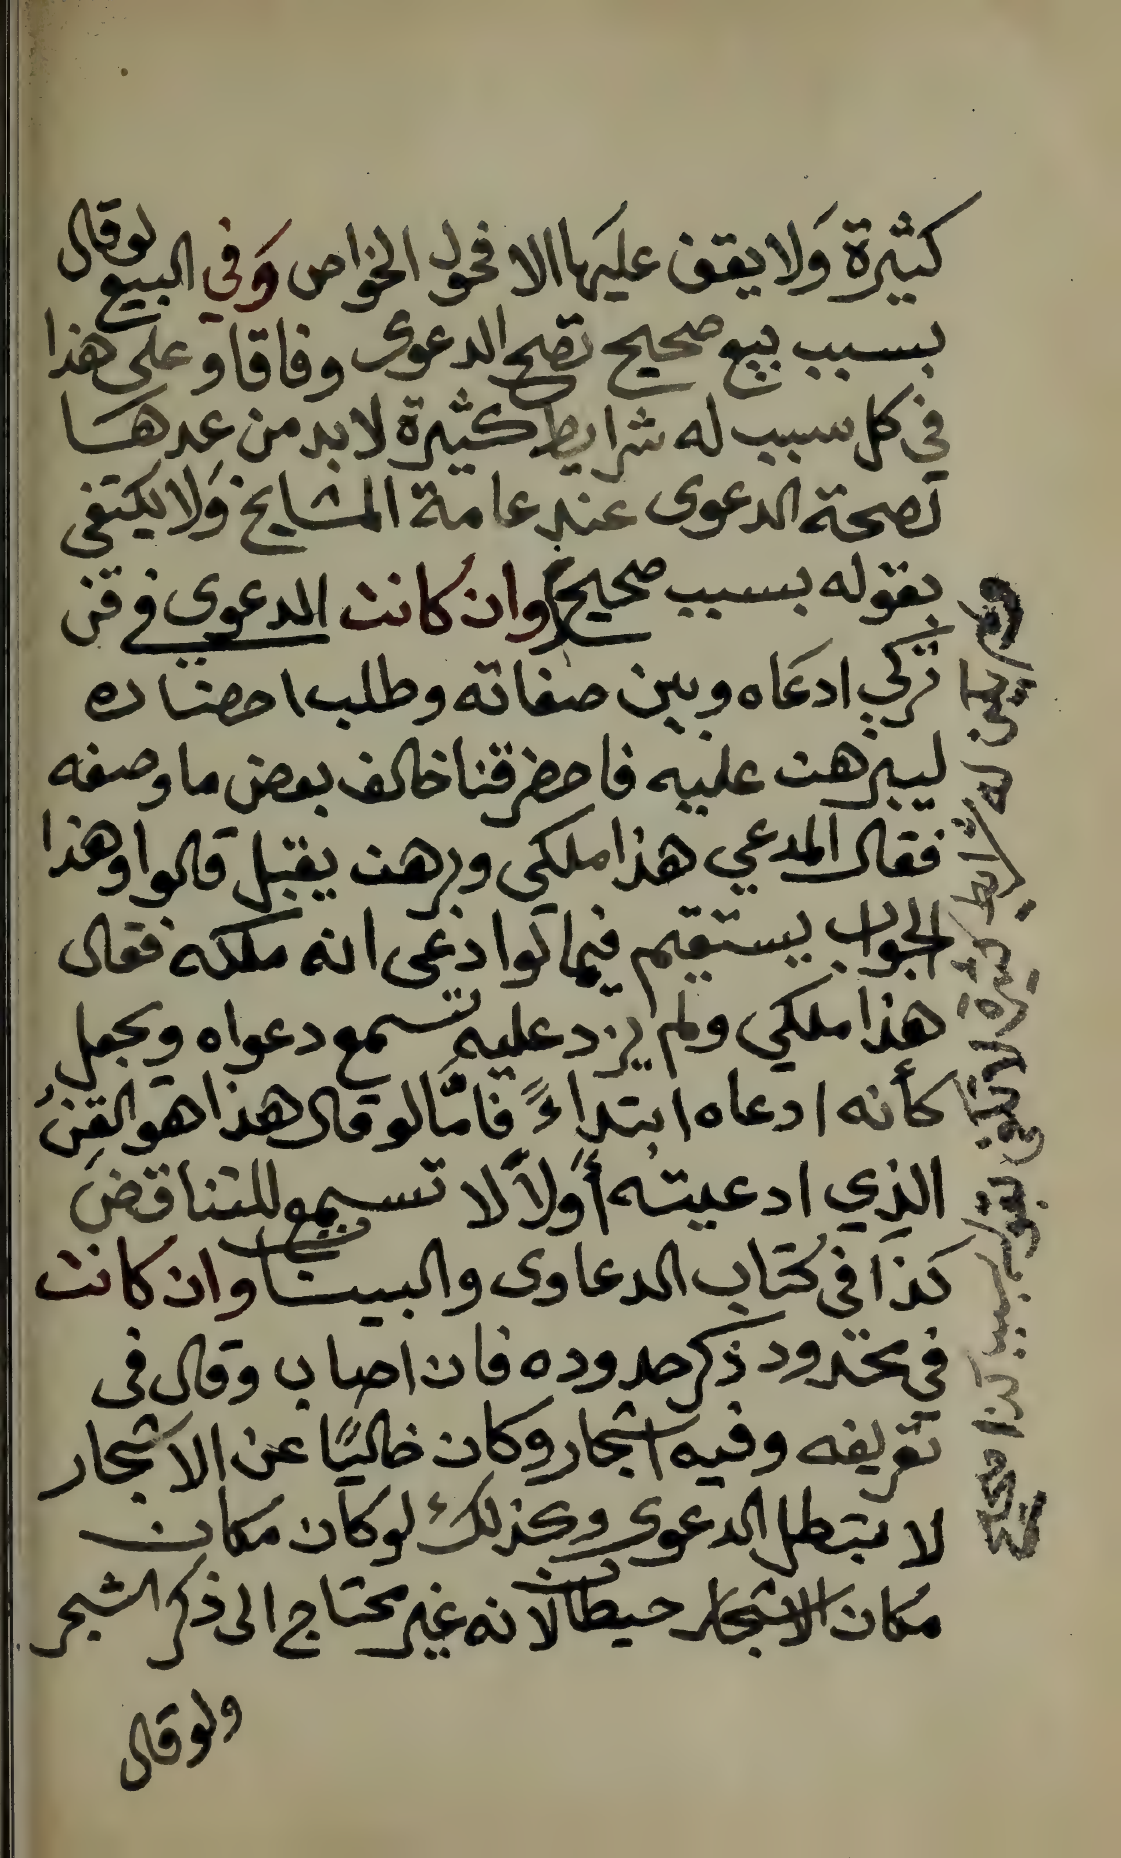 كثيرة ولا يقف عليها الا فحول الخواص وفي البيع لوقال
بسبب بيع صحيح تصح الدعوى وفاقا وعلى هذا
في كل سبب له شرايط كثيرة لابد من عدها
تصحة الدعوى عند عامة المشايخ ولا يكتفى
بقوله بسبب صحيح وان كانت الدعوى في قن
تركي ادعاه وبين صفاته وطلب احضاره
ليبرهن عليه فاحضر قنا خالف بعض ما وصفه
فقال المدعي هذا ملكي وبرهن يقبل قالوا وهذا
الجواب يستقيم فيما لو ادعى انه ملكه فقال
هذا ملكي ولم يزد عليه تسمع دعواه ويجعل
كأنه ادعاه ابتداءً فامّا لو قال هذا هو القن
الذي ادعيته أولاً لا تسمع للتناقض
كذا في كتاب الدعاوى والبينات وان كانت
في محدود ذكر حدوده فان اصاب وقال في
تعريفه وفيه اشجار وكان خاليًا عن الاشجار
لا تبطل الدعوى وكذلك لو كان مكان
مكان الاشجار حيطان لانه غير محتاج الى ذكر الشجر
ولو قال
له شرايط كثيرة لا يكتفى بقوله بسبب كذا صحيح